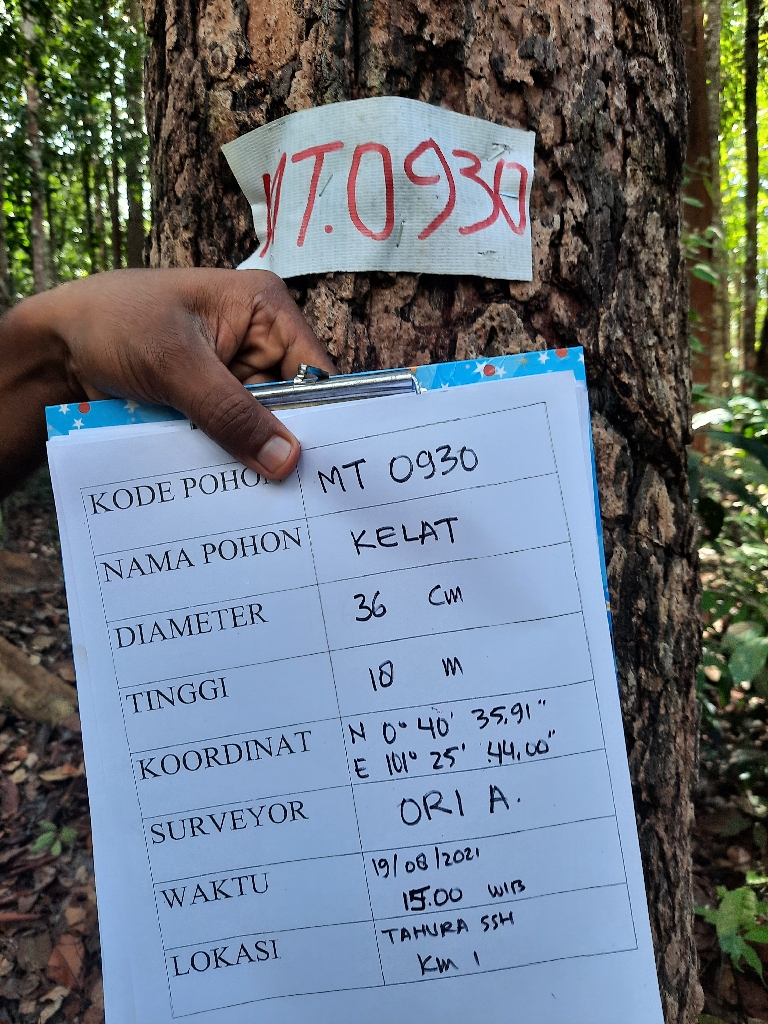 MT.0930
KODE POHON MT 0930
NAMA POHON KELAT
DIAMETER 36 cm
TINGGI 18 m
KOORDINAT N 0° 40' 35.91"
E 101° 25' 44.00"
SURVEYOR ORI A.
WAKTU 19/08/2021
15.00 WIB
LOKASI TAHURA SSH
Km 1